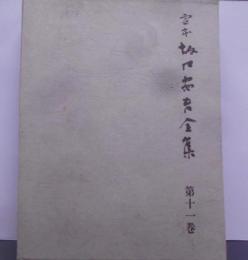 定本 坂口安吾全集
第十一巻